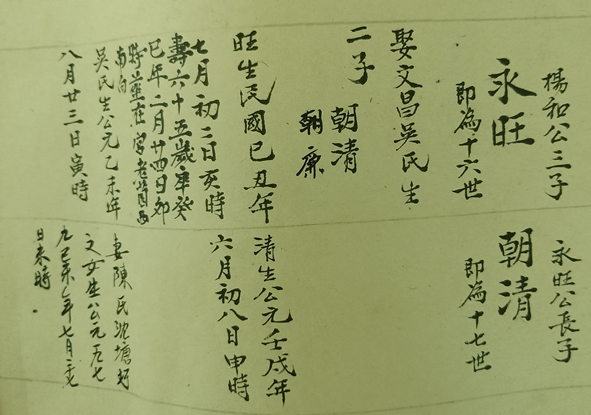 楊和公三子
永旺
即為十六世
娶文昌吳氏生
二子
朝清
朝廉
旺生民國己丑年
七月初二日亥時
壽六十五歲卒癸
巳年二月廿四日卯
時葬在官老
南向
吳氏生公元乙未年
八月廿三日寅時
永旺公長子
朝清
即為十七世
清生公元壬戌年
六月初八日申時
妻陳氏
文女生公元一九七
九己未年七月
日未時.